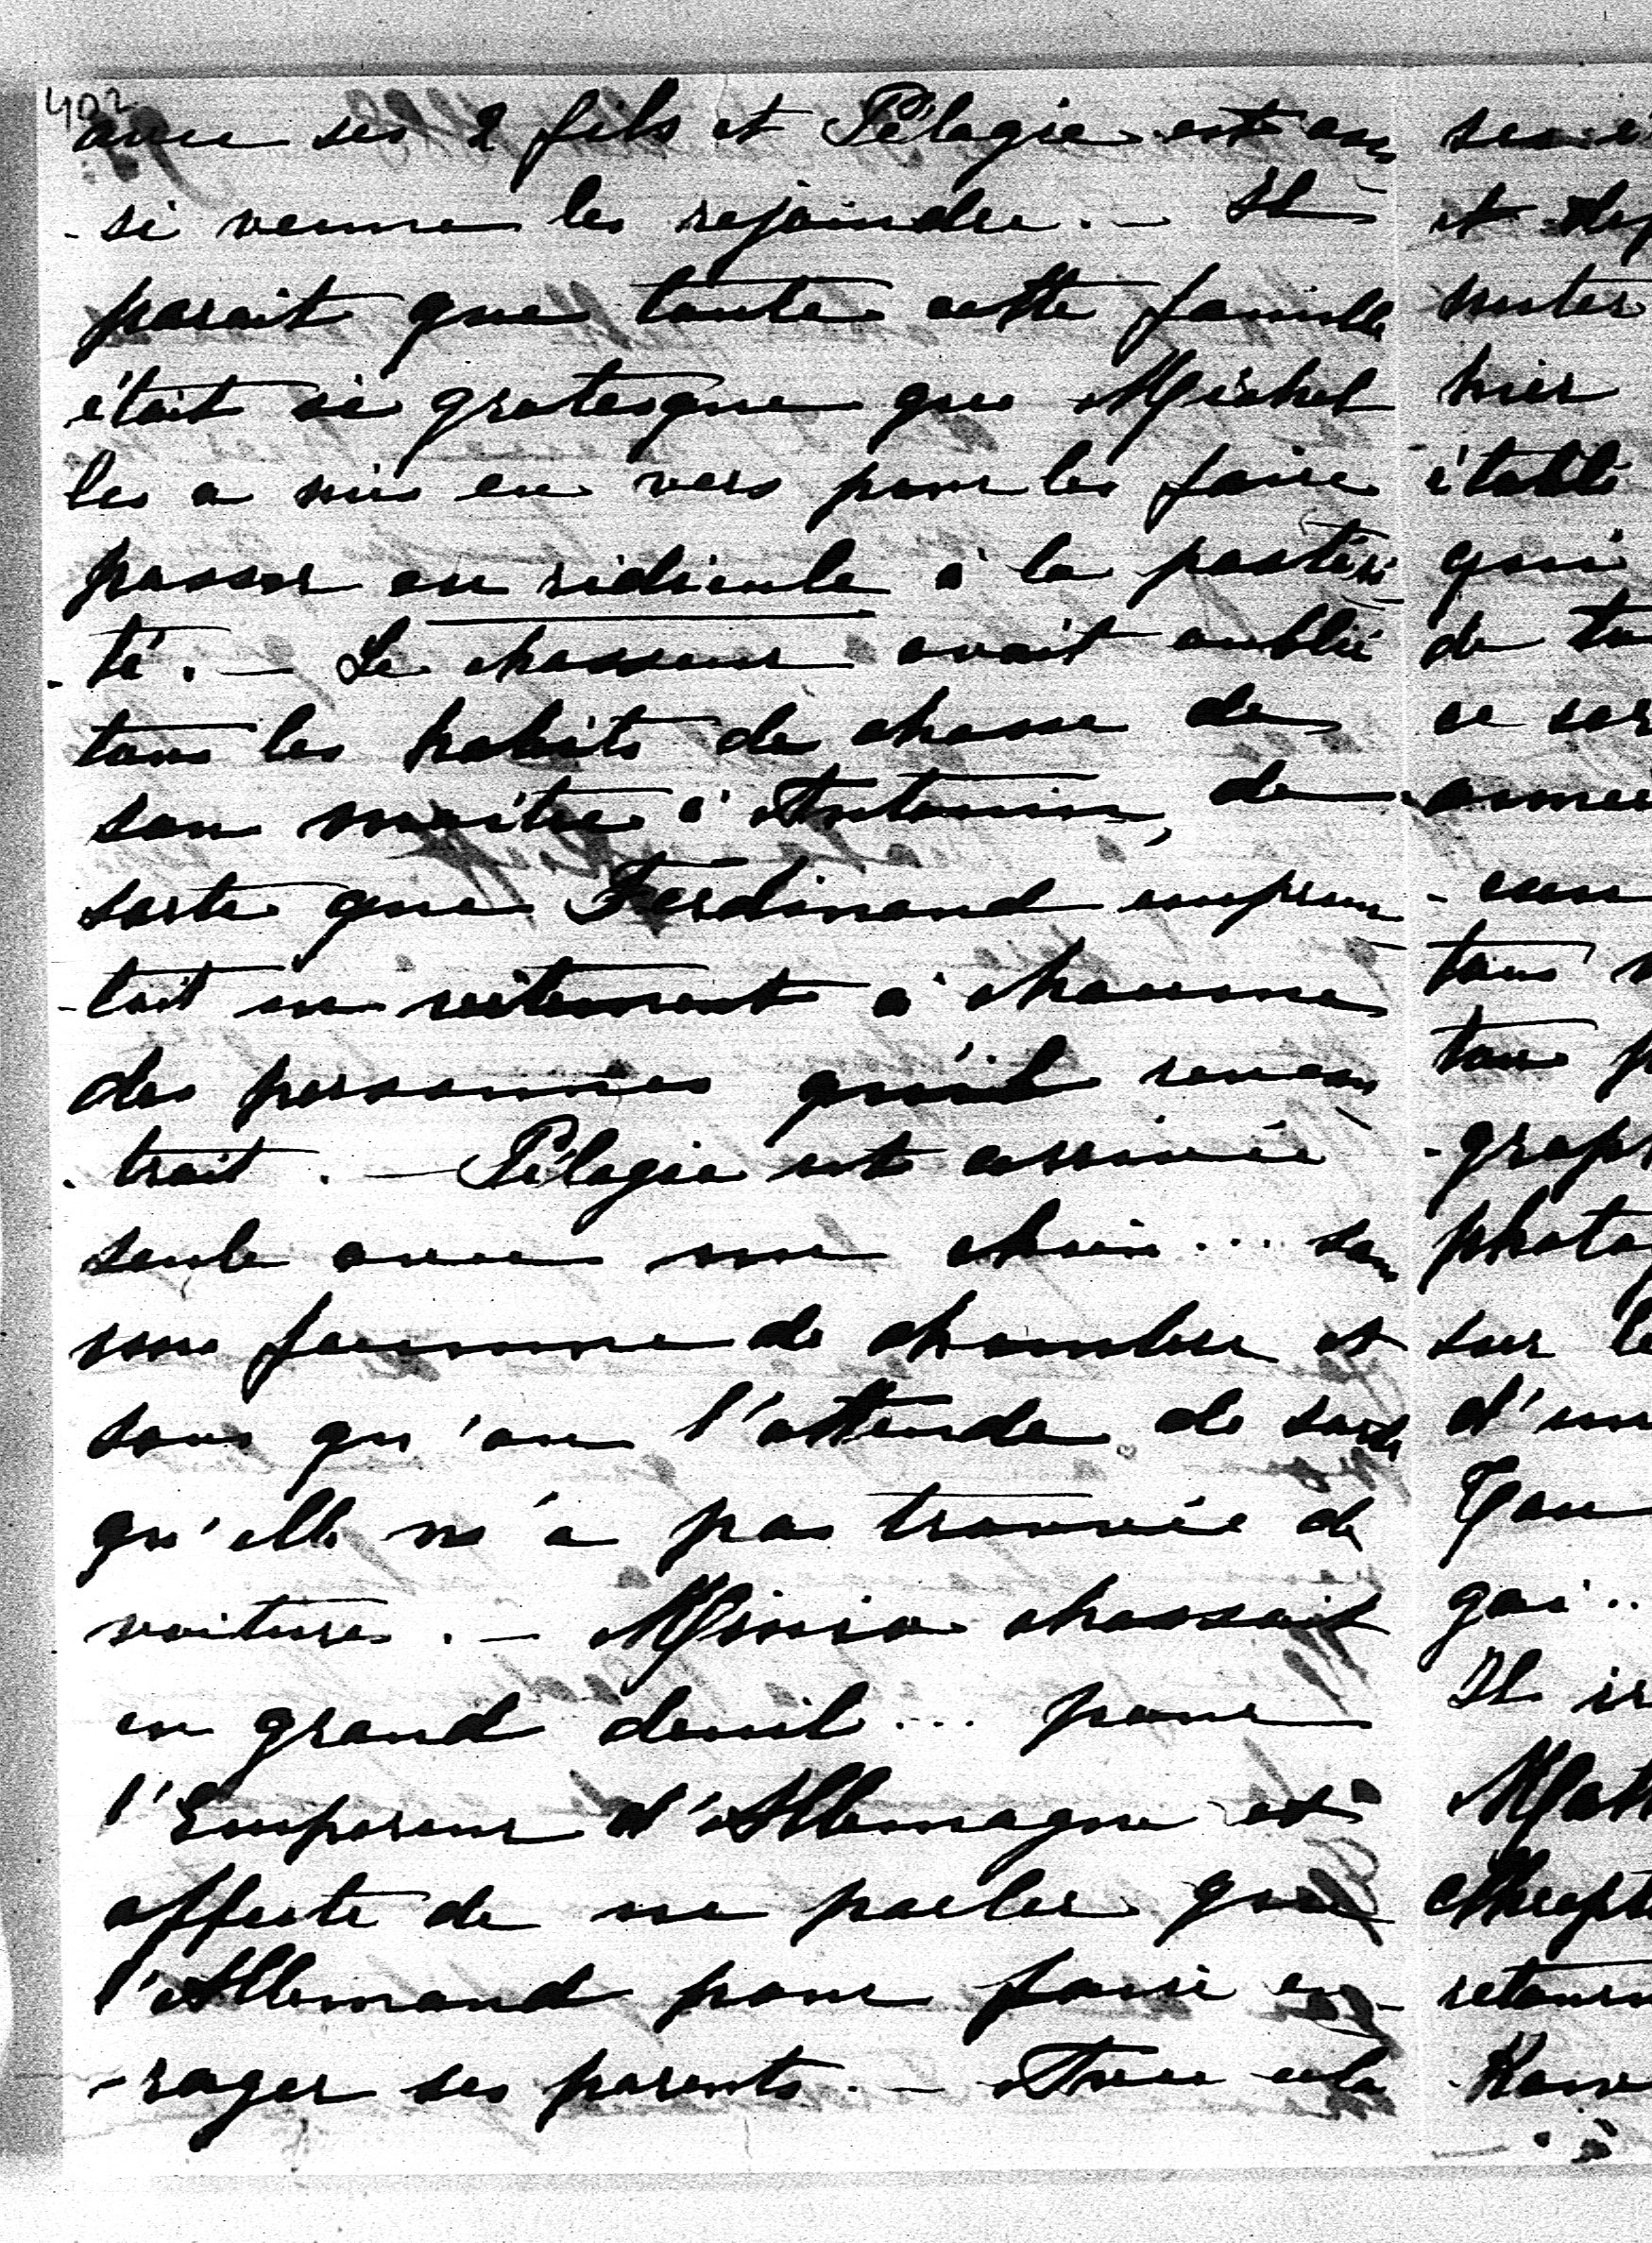 402
avec ses 2 fils et Pélagie est aus
-si venue les rejoindre. - Il
parait que toute cette famille
était si grotesque que Michel
les a mis en vers pour les faire
passer en ridicule à la postéri
-té. - Le chasseur avait oublié
tous les habits de chasse de
son maître à Antonin, de
sorte que Ferdinand emprun
-tait un vêtement à chacune
des personnes qu'il rencon
-trait. - Pélagie est arrivée
seule avec un chien... san
une femme de chambre et
sans qu'on l'attende de sorte
qu'elle n'a pas trouvée de
voiture. - Minia chassait
en grand deuil... pour
l'Empereur d'Allemagne et
affecte de ne parler que
l'Allemand pour faire en-
-rager ses parents. - Avec cela
et
muter
nier
établi
qui
de
tous
sur
d'un
gai..
Il